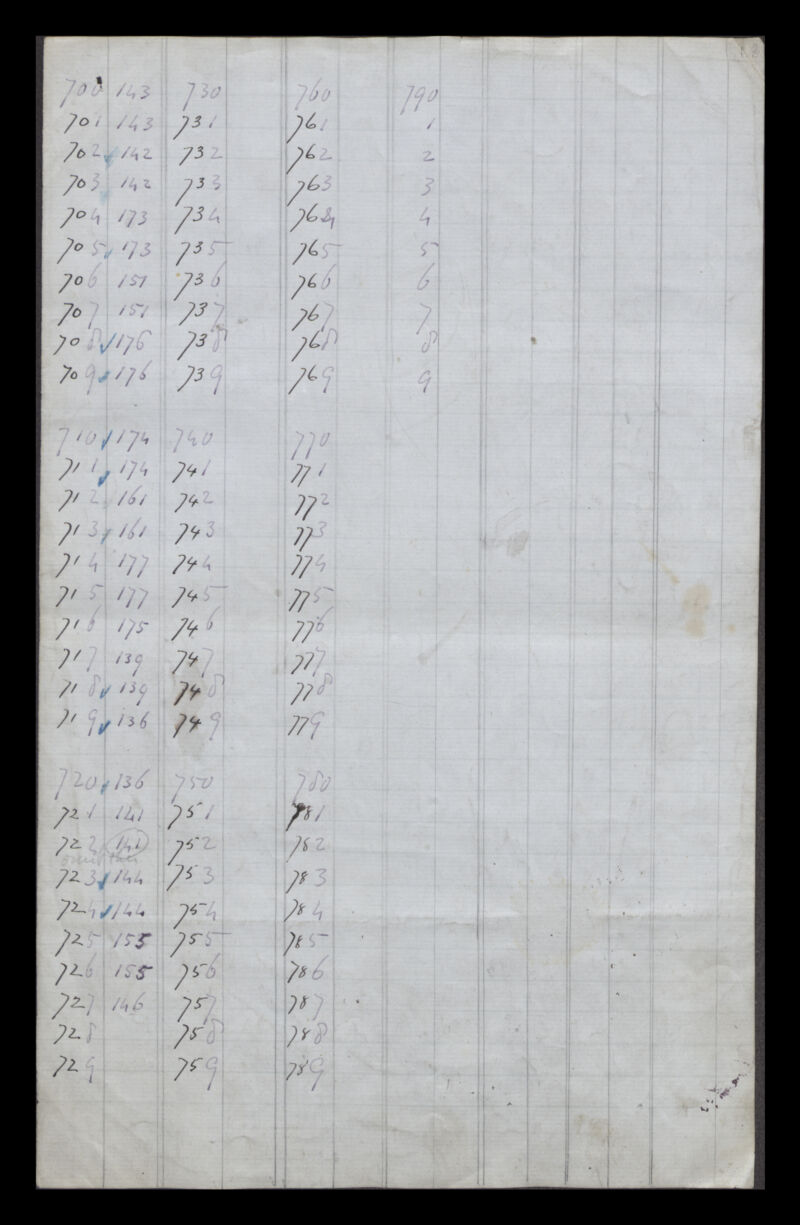 700 143 730 760 790
701 143 731 761 1
702 142 732 762 2
703 142 733 763 3
704 173 734 764 4
705 173 735 765 5
706 151 736 766 6
707 151 737 767 7
708 176 738 768 8
709 176 739 769 9
710 174 740 770
711 174 741 771
712 161 742 772
713 161 743 773
714 177 744 774
715 177 745 775
716 175 746 776
717 139 747 777
718 139 748 778
719 136 749 779
720 136 750 780
721 141 751 781
722 141 752 782
omit this
723 144 753 783
724 144 754 784
725 155 755 785
726 155 756 786
727 146 757 787
728 758 788
729 759 789